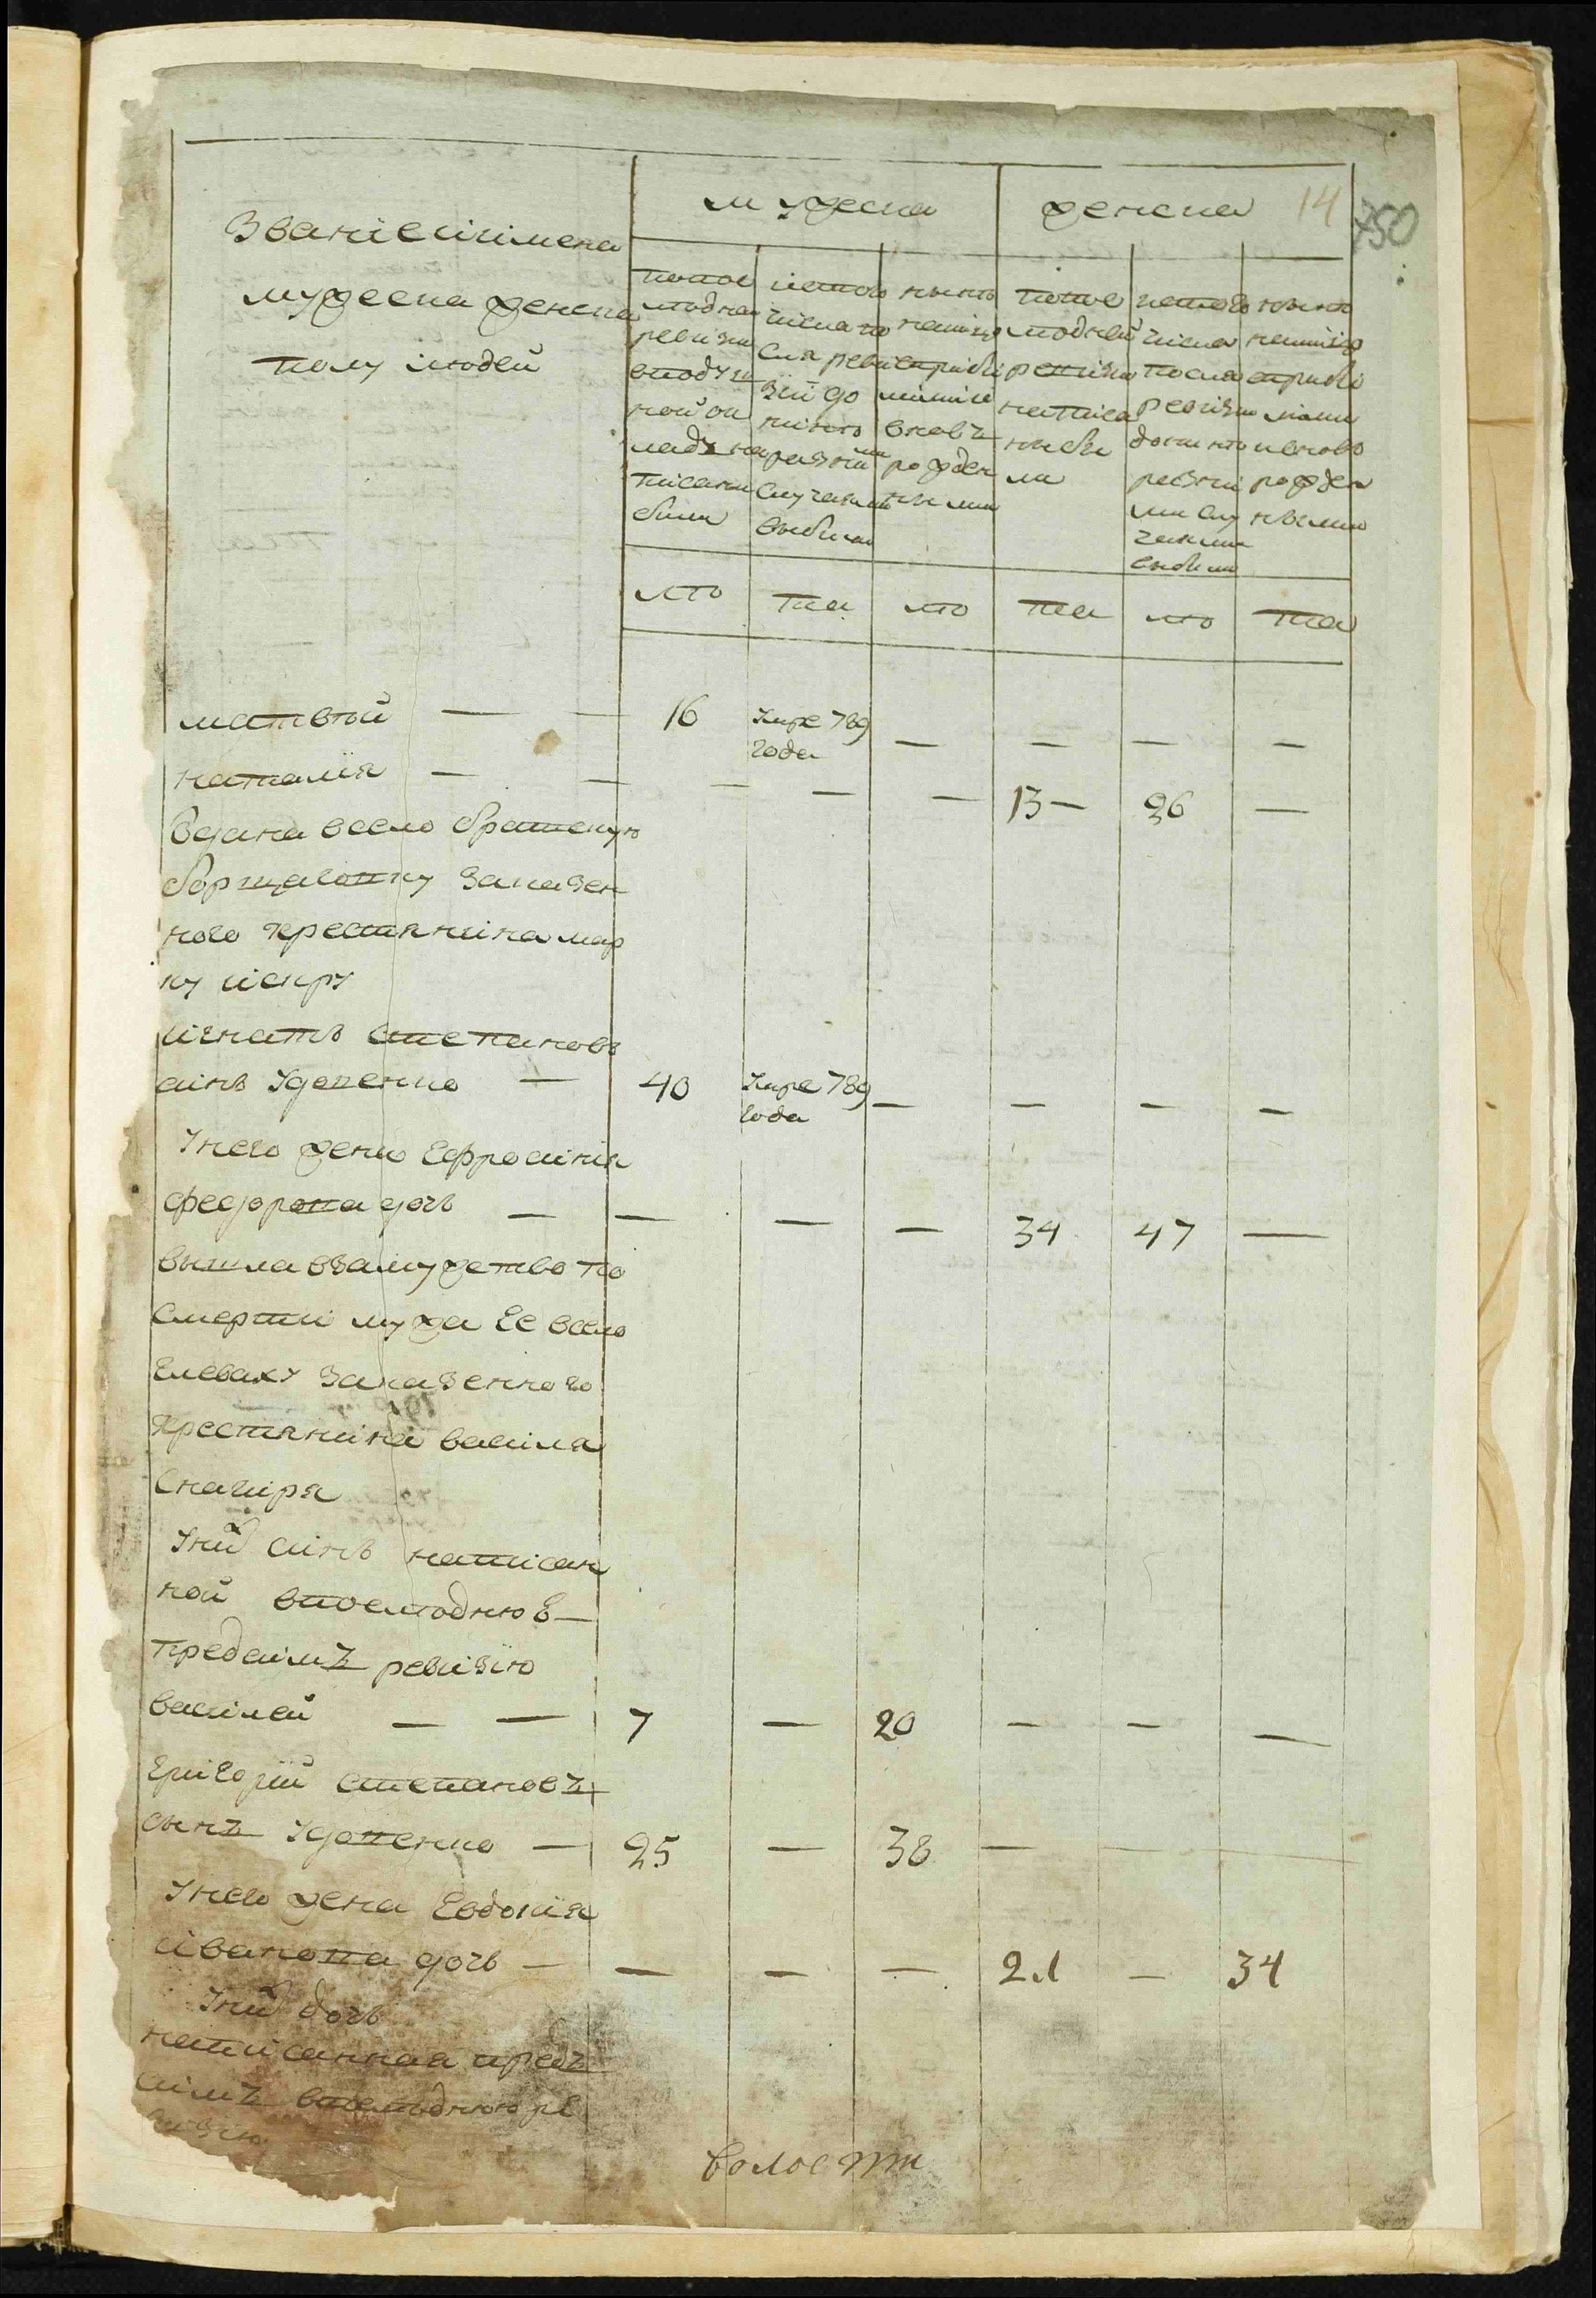 14
750
Званіе иимена
мужеска женска
полу людей
мужеска
женска
попос
лѣдней
ревизіи
вподуш
ной ок
ладъ на
писани
были
ис того
числа по
сля реви
зіи до
нинѣ
разними
случаями
выбили
нынѣ
налицо
сприбі
лими и
вновъ
рожден
ными
попос
лѣдней
ревизіи
написа
ны бы
ли
ис того
числа
после
ревизіи
до нинѣ
разни
ми слу
чаями
выбили
нынѣ
налицо
сприбі
лими
и вново
рожден
ными
лѣ
та
лѣ
та
лѣ
та
матвѣй — — 16 Умре 789 — — — —
года
наталия — — — — — 13 — 26 —
вдана всело братскую
борщаговку заказен
ного крестянина мар
ку искру
игнатъ степановъ
синъ Удовенко — 40 Умре 789 — — — —
года
Унего жена Ефросиния
федорова дочь — — — — 34 47 —
вышла взамужство по
смерти мужа Ее всело
Глеваху заказенного
крестянина василя
снагиря
Уних синъ написан
ной впослѣднюЕ —
предсимъ ревизію
василей — — 7 — 20 — — —
Григорій степановъ
сынъ Удовенко — 25 — 38 — — —
Унего жена Евдокия
иванова дочь — — — — 21 — 34
Уних дочь
написанная предъ
симъ впослѣднюю ре
визію
волости